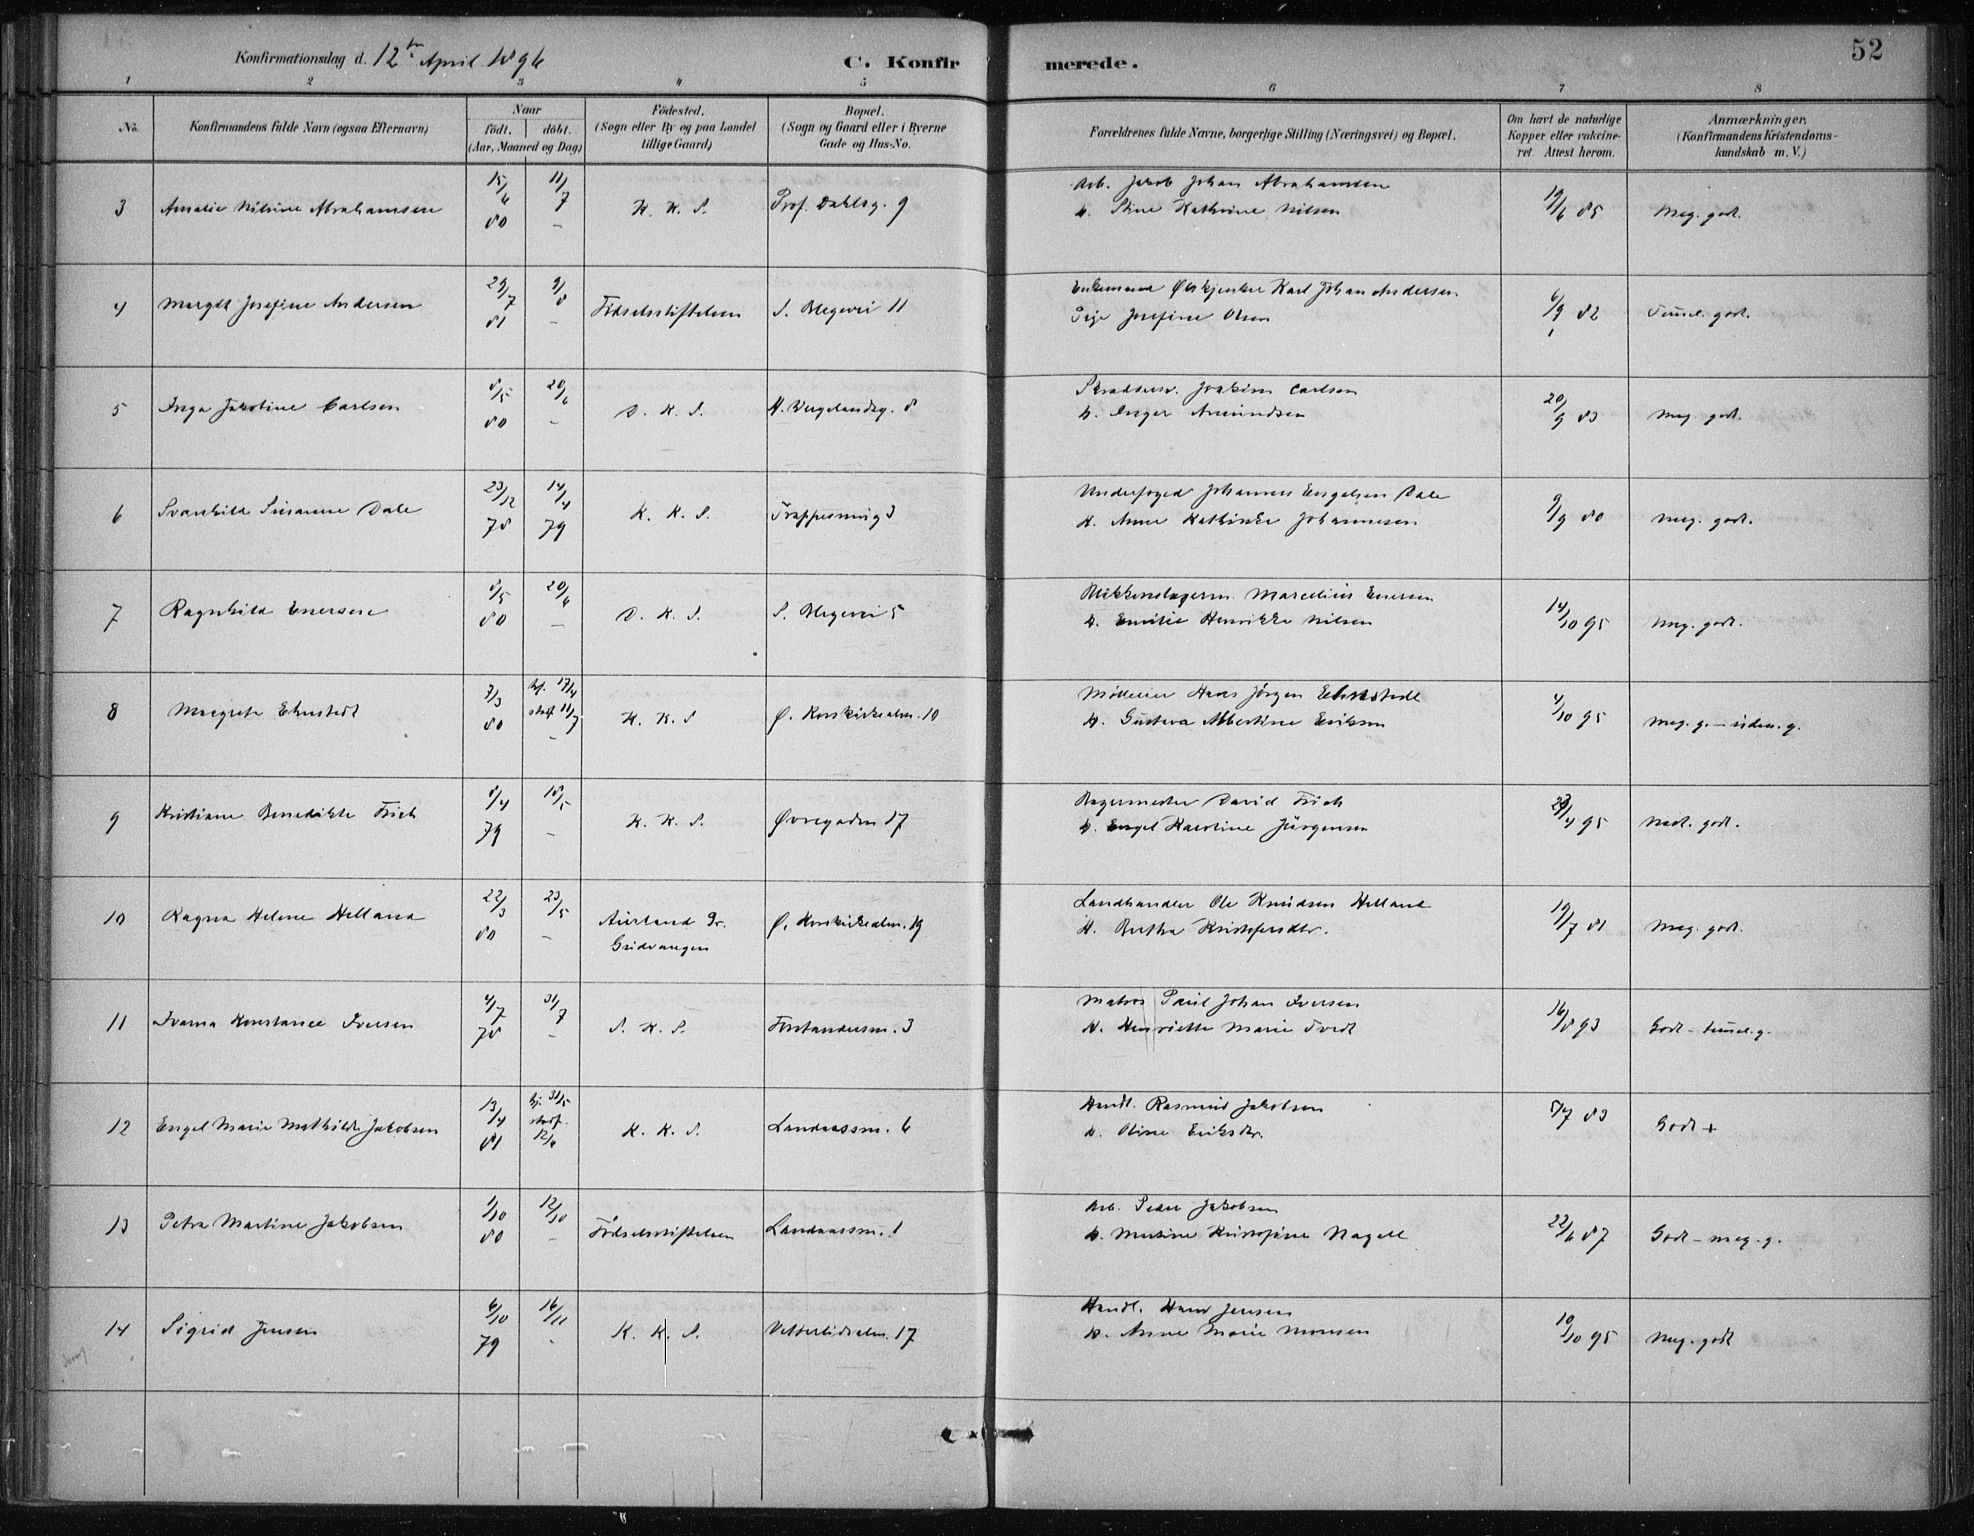 Konfirmationsdag d. 12te April 1896
C. Konfirmerede.
52
1 2 3 4 5 6 7 8
No.
Konfirmandens fulde Navn (ogsaa Efternavn)
Naar
födt. döbt.
(Aar, Maaned og Dag)
Födested.
(Sogn eller By og paa Landet
tillige Gaard)
Bopæl.
(Sogn og Gaard eller i Byerne
Gade og Hus-No.
Forældrenes fulde Navne, borgerlige Stilling (Næringsvei) og Bopæl.
Om havt de naturlige
Kopper eller vakcine-
ret. Attest herom.
Anmærkninger.
(Konfirmandens Kristendoms-
kundskab m. V.)
3 Amalie Nilsine Abrahamsen 15/6 80 11/7 - K. K. S. Prof. Dahlsg. 9
Arb. Jakob Johan Abrahamsen
H. Stine Kathrine Nilsen
19/6 85 Meg. godt.
4 Margit Josefine Andersen 29/7 81 9/8 - Fødselsstiftelsen S. Blegevei 11
Enkemand Ølskjenker Karl Johan Andersen
Pige Josefine Olsen
6/9 82 Temmel. godt.
5 Inga Jakobine Carlsen 8/5 80 20/6 - D. K. S. H. Wergelandsg. 8
Skrædders. Joakim Carlsen
H. Inger Amundsen
20/9 83 Meg. godt.
6 Svanhild Susanne Dale 23/12 78 14/4 79 K. K. S. Trappesmug 3
Underfoged Johannes Engelsen Dale
H. Anne Kathinka Johannesen
9/9 80 Meg. godt.
7 Ragnhild Enersen 8/5 80 20/6 - D. K. S. S. Blegevei 5
Blikkenslagerm. Marcelius Enersen
H. Emilie Henrikke Nilsen
14/10 95 Meg. godt.
8 Margrete Ehrstedt 3/3 80 hj. 17/4 stadf. 11/7 - K. K. S Ø. Korskirkealm. 10
Hans Jörgen
H. Gustava Albertine Eriksen
4/10 95 Meg. g. - uden. g.
9 Kristiane Benedikte Frich 8/4 79 18/5 - K. K. S. Øvregaden 17
Bagermester David Frich
H. Engel Karoline Jürgensen
4 95 godt.
10 Ragna Helene Helland 22/3 80 23/5 - Aurland Pr.
Gudvangen
Ø. Korskirkealm. 19
Landhandler Ole Knudsen Helland
H. Bertha Kristofersdtr.
19/7 81 Meg. godt.
11 Ivarna Konstance Iversen 4/7 78 31/7 - S. K. S. Forstandersm. 3
Matros Paul Johan Iversen
H. Henriette Marie Tvedt
16/8 93 Godt - temmel. g.
12 Engel Marie Mathilde Jakobsen 13/4 81 hj. 31/5 stadf. 12/6 K. K. S. Landaassm. 6
Handl. Rasmus Jakobsen
H. Oline Eriksdtr.
5/7 83 Godt +
13 Petra Martine Jakobsen 1/10 80 12/10 - Fødselsstiftelsen Landaassm. 1
Arb. Peder Jakobsen
H. Martine Kristofine Nagell
22/6 87 Godt - meg. g.
14 Sigrid Jensen 6/10 79 16/11 - K. K. S. Vetterlidsalm. 17
Handl. Hans Jensen
H. Anne Marie Monsen
10/10 95 Meg. godt